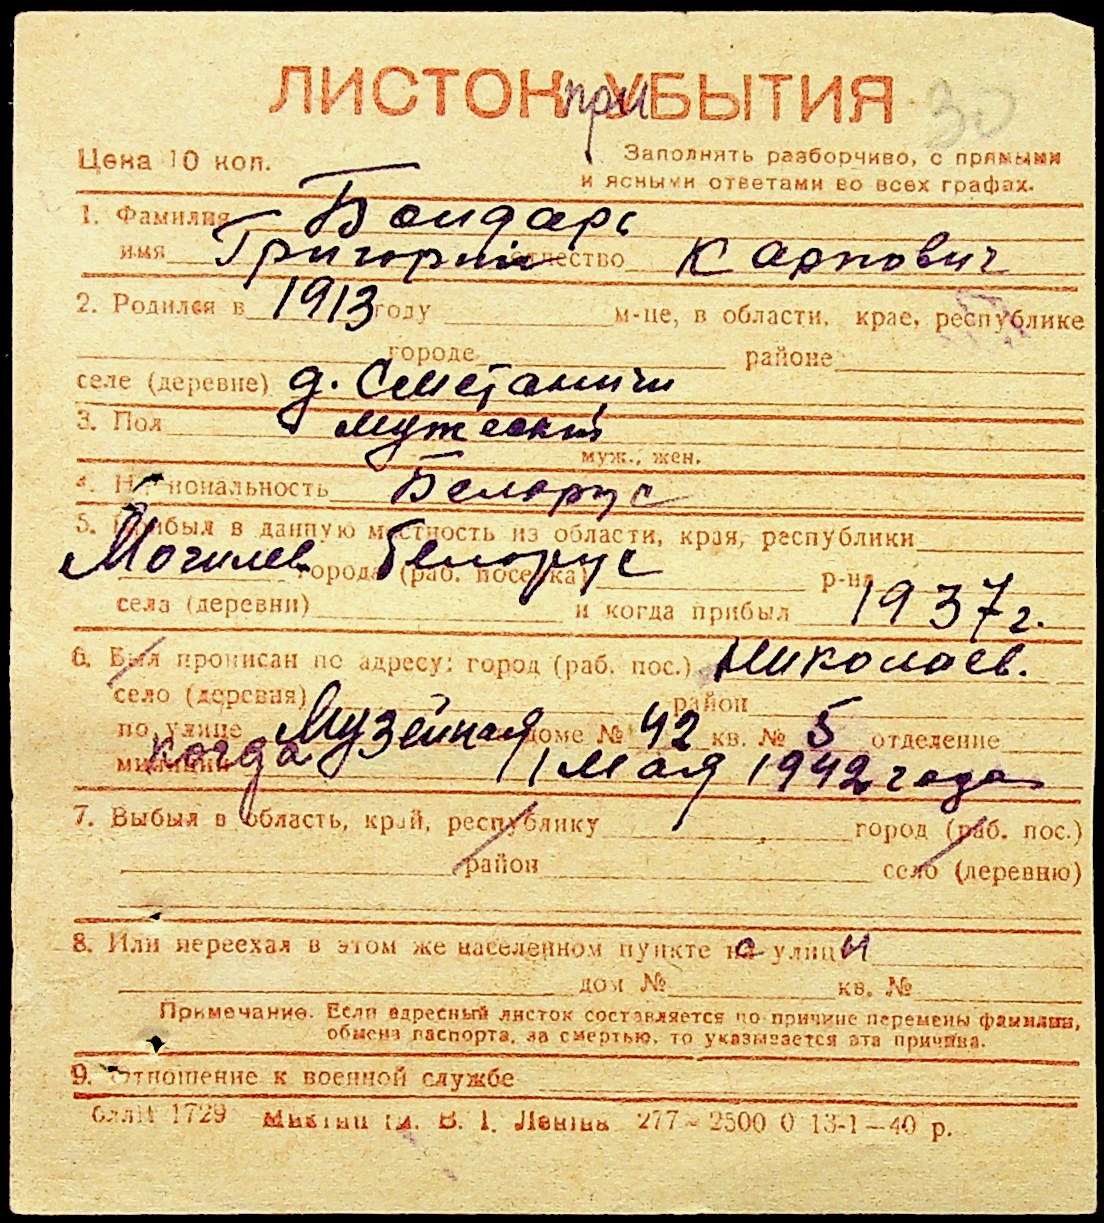 ЛИСТОК приУБЫТИЯ 30
Цена 10 коп.
Заполнять разборчиво, с прямыми
и ясными ответами во всех графах.
1. Фамилия Бондарь
имя Григорий отчество Карпович
2. Родился в 1913 году м-це, в области, крае, республике
городе районе
селе (деревне) д. Сметаничи
3. Пол мужеский
муж., жен.
4. Национальность Белорус
5. Прибыл в данную местность из области, края, республики
Могилев Белорус города (раб. поселка) р-на
села (деревни) и когда прибыл 1937 г.
6. Был прописан по адресу: город (раб. пос.) Николаев.
село (деревня) район
по улице Музейная доме № 42 кв. № 5 отделение
милиции когда 1 Мая 1942 года
7. Выбыл в область, край, республику город (раб. пос.)
район село (деревню)
8. Или переехал в этом же населенном пункте на с улицы и
дом № кв. №
Примечание. Если адресный листок составляется по причине перемены фамилии,
обмена паспорта, за смертью, то указывается эта причина.
9. Отношение к военной службе
1729 ім. В. І. Леніна 277—2500 0 13-1—40 р.